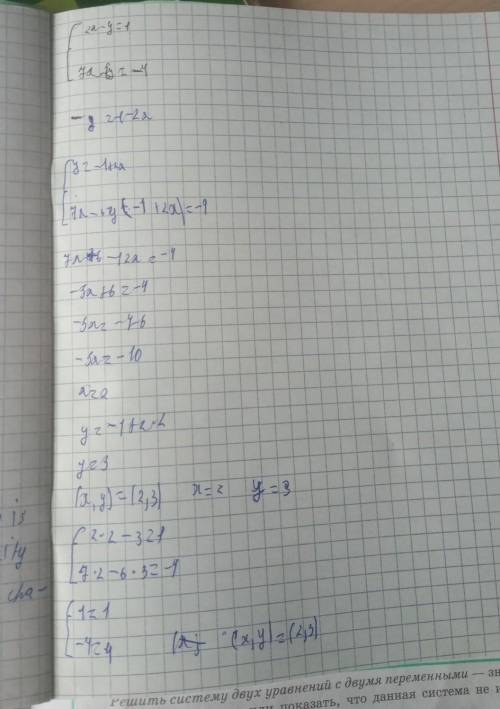 2x-y=1
7x-6y=-4
-y=1-2x
y=-1+2x
7x-6y(-1+2x)=-4
7x+6-12x=-4
-5x+6=-4
-5x=-4-6
-5x=-10
x=2
y=-1+2·2
y=3
(x,y)=(2,3) x=2 y=3
2·2-3=1
7·2-6·3=-4
1=1
-4=4 (x,y)=(2,3)
is
ity
cha-
Решить систему двух уравнений с двумя переменными — зн
или показать, что данная система не и